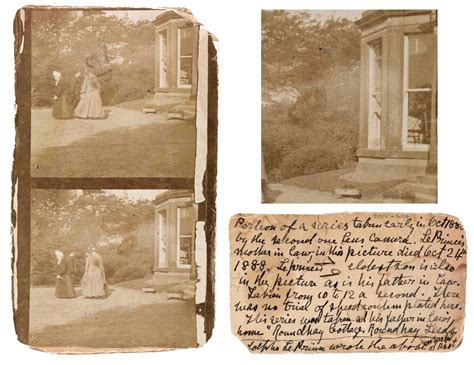 Portion of a series taken early in October
by the second one lens camera. LePrince's
mother in law in this picture died Oct 24th
1888. Leprince's eldest son is also
in the picture as is his father in law.
Taken from 10 to 12 a second. There
was no trial of speed contemplated here.
This series was taken at his father in law's
home "Roundhay Cottage, Roundhay Leeds
Adolphe Le Prince wrote the above